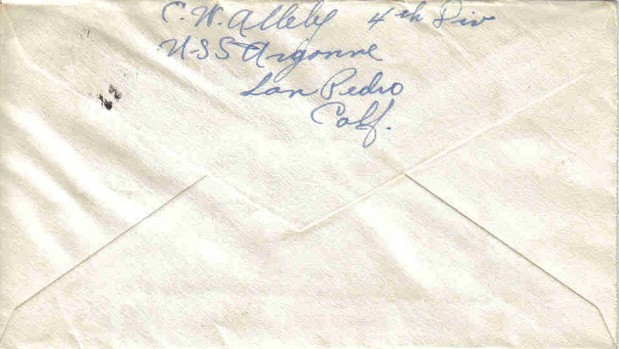 C. W. Alleby 4th Div
USS Argonne
San Pedro
Calf.